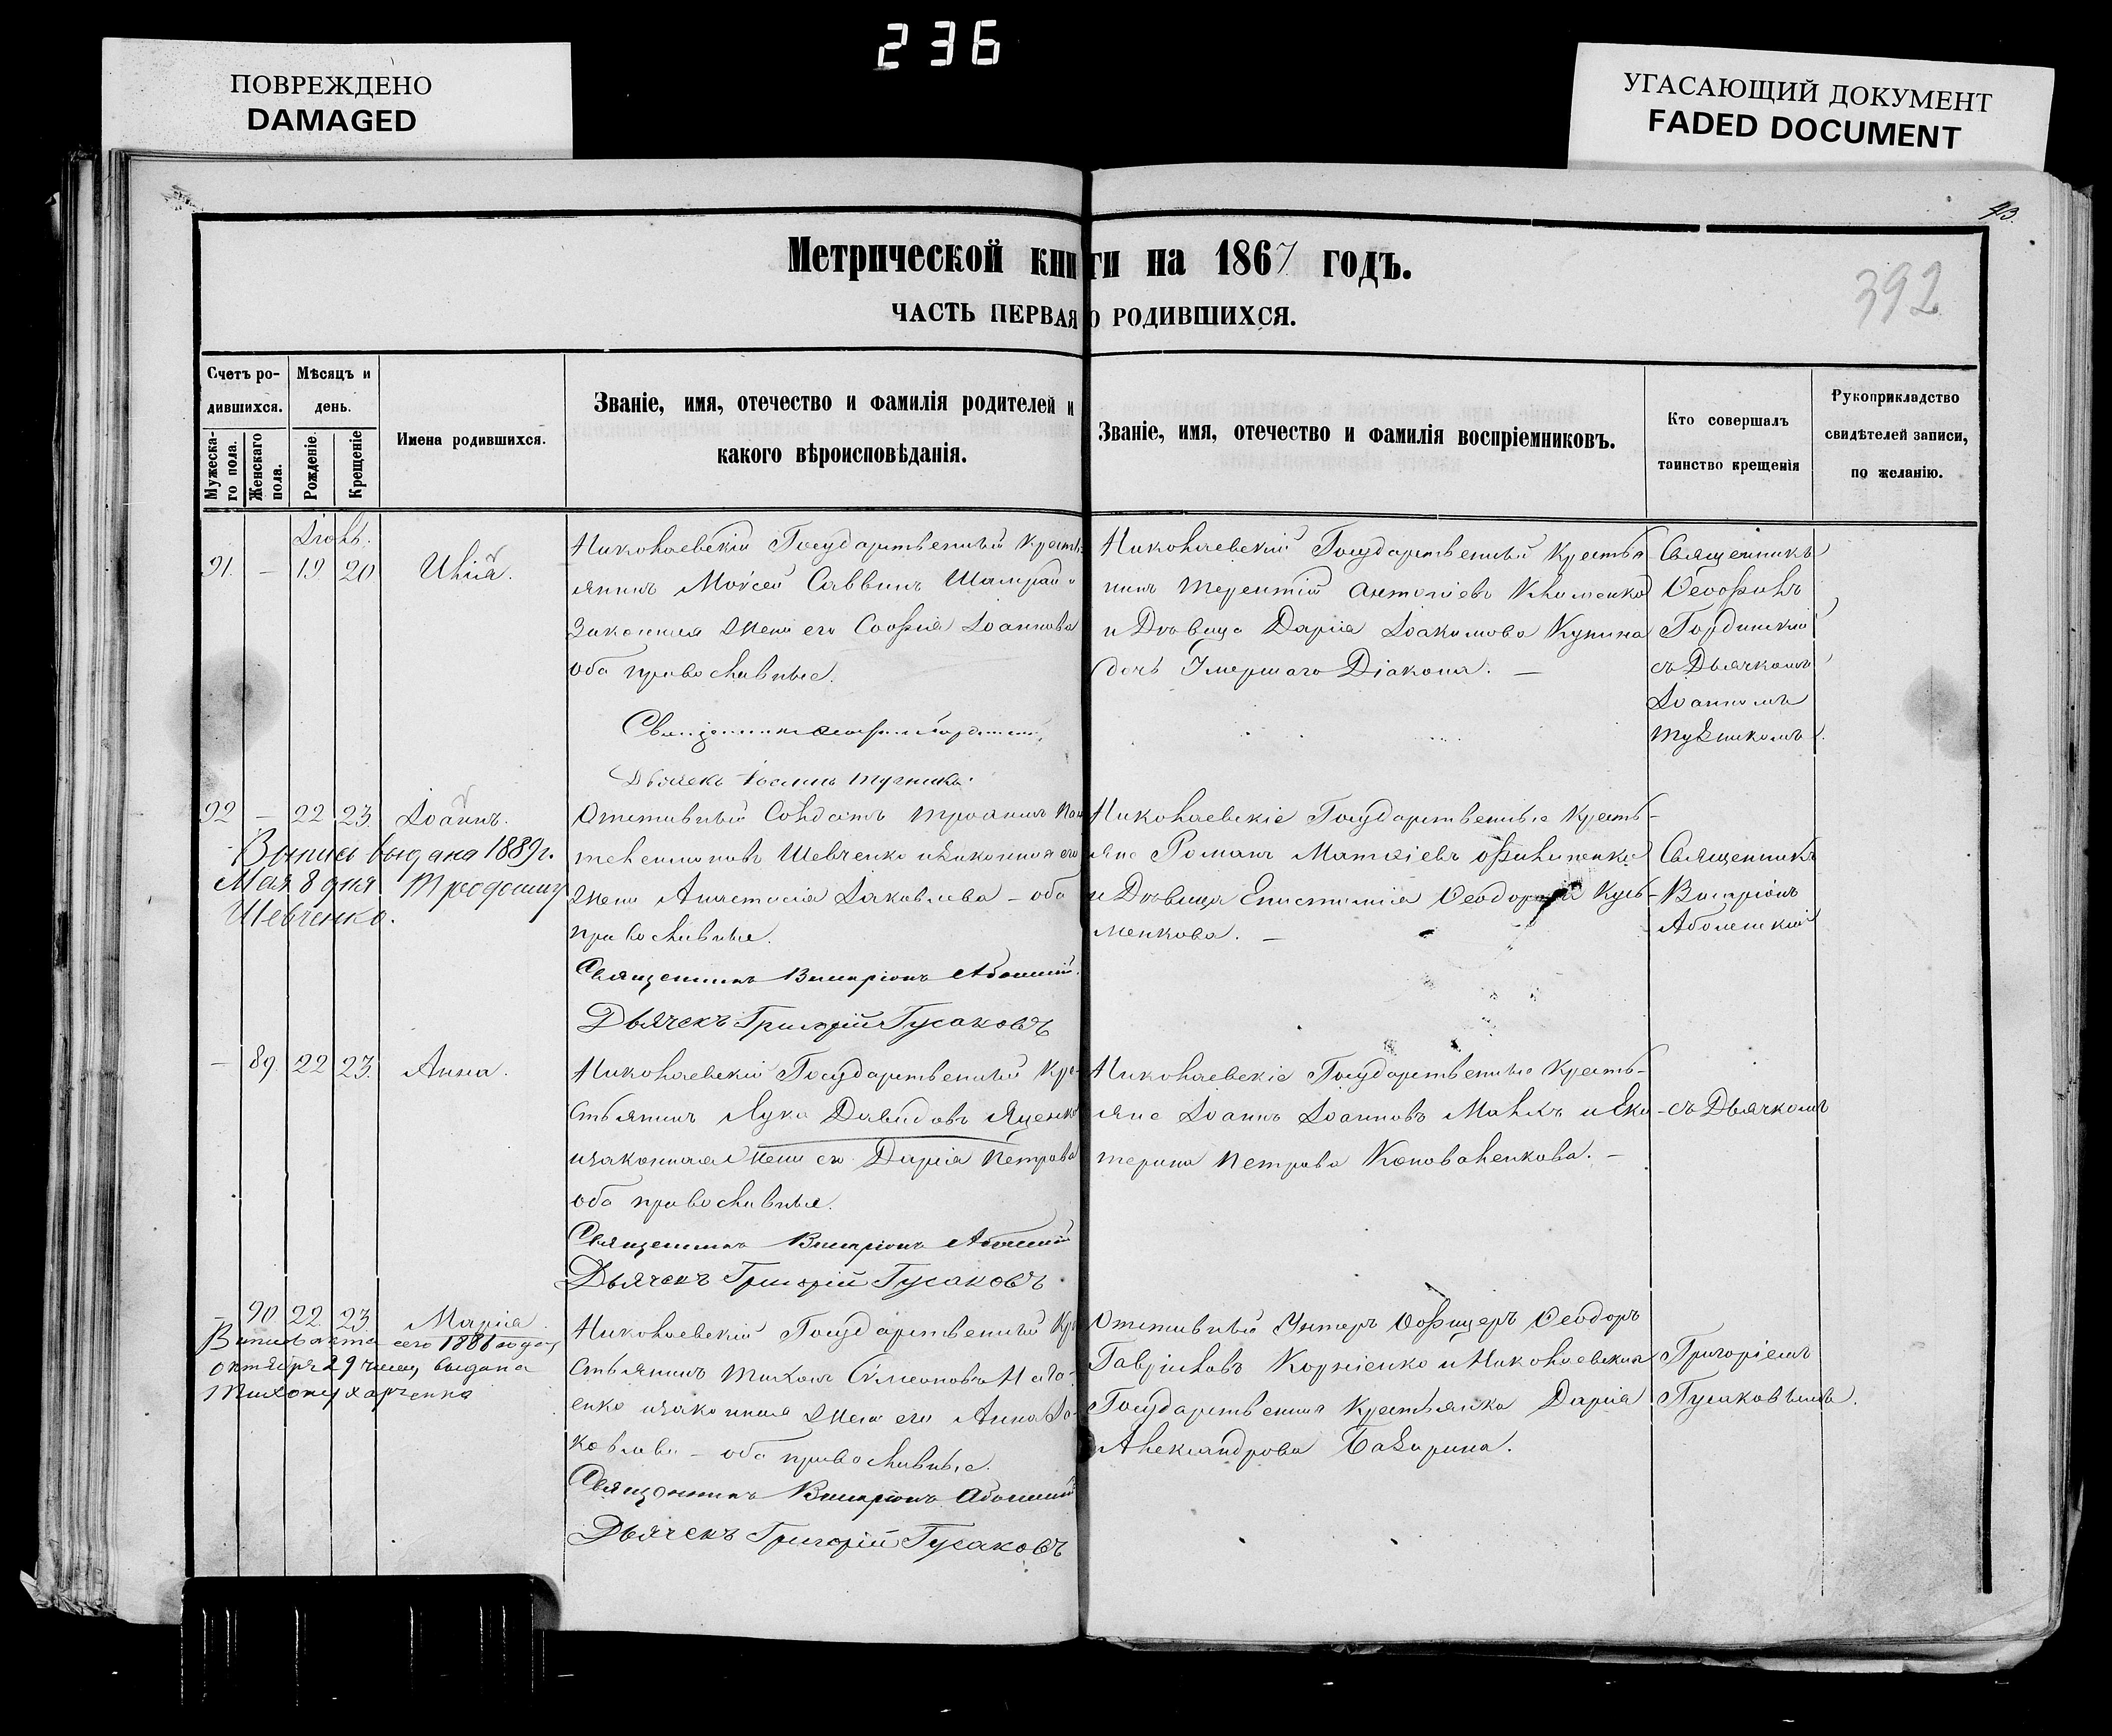 236
ПОВРЕЖДЕНО
DAMAGED
УГАСАЮЩИЙ ДОКУМЕНТ
FADED DOCUMENT
43.
392
Метрической книги на 1867 годъ.
ЧАСТЬ ПЕРВАЯ О РОДИВШИХСЯ.
Счетъ родившихся.
Мужескаго пола.
Женскаго пола.
Мѣсяцъ и день.
Рожденіе.
Крещеніе
Имена родившихся.
Званіе, имя, отечество и фамилія родителей и
какого вѣроисповѣданія.
Званіе, имя, отечество и фамилія воспріемниковъ.
Кто совершалъ
таинство крещенія
Рукоприкладство
свидѣтелей записи,
по желанію.
Іюль.
91. — 19 20 Илія.
Николаевскій Государственный Кресть-
янинъ Мойсей Саввинъ Шамрай и
Законная жена его Софія Іоаннова
оба православные.
Священникъ Ѳеофилъ
Дьячекъ Іоаннъ
Николаевскій Государственный Крестья
нинъ Терентій Антоніевъ Клименко
и Дѣвица Дарія Іоакимова Купина
дочь Умершаго Діакона. —
Священникъ
Ѳеофилъ
Гординскій
съ Дьячкомъ
Іоанномъ
92 — 22 23 Іоаннъ.
Выпись выдана 1889 г.
Мая 8 дня
Шевченко.
Отставный Солдатъ Трофимъ Пан
телеимоновъ Шевченко и законная его
жена Анастасія Іаковлева — оба
православные.
Священникъ Виссаріонъ
Дьячекъ Григорій Гусаковъ
Николаевскіе Государственные Кресть-
яне Романъ Матѳіевъ Филипенко
и Дѣвица Епистимія Ѳеодорова Кузь-
менкова. —
Священникъ
Виссаріонъ
— 89 22 23 Анна.
Николаевскій Государственный Кре-
стьянинъ Лука Давидовъ Яценко
и законная жена его Дарія Петрова
оба православные.
Священникъ Виссаріонъ
Дьячекъ Григорій Гусаковъ
Николаевскіе Государственные Кресть-
яне Іоаннъ Іоанновъ и Ека-
терина Петрова Коноваленкова. —
съ Дьячкомъ
— 90 22 23 Марія.
Выпись акта сего 1881 года
октября 29 числа выдана
Тихону Харченка
Николаевскій Государственный Кре
стьянинъ Тихонъ Сѵмеоновъ
енко и законная жена его Анна Іа-
ковлева — оба православные.
Священникъ Виссаріонъ
Дьячекъ Григорій Гусаковъ
Отставный Унтеръ Офицеръ Ѳеодоръ
Гавріиловъ Корніенко и Николаевская
Государственная Крестьянка Дарія
Александрова
Григоріемъ
Гусаковымъ.